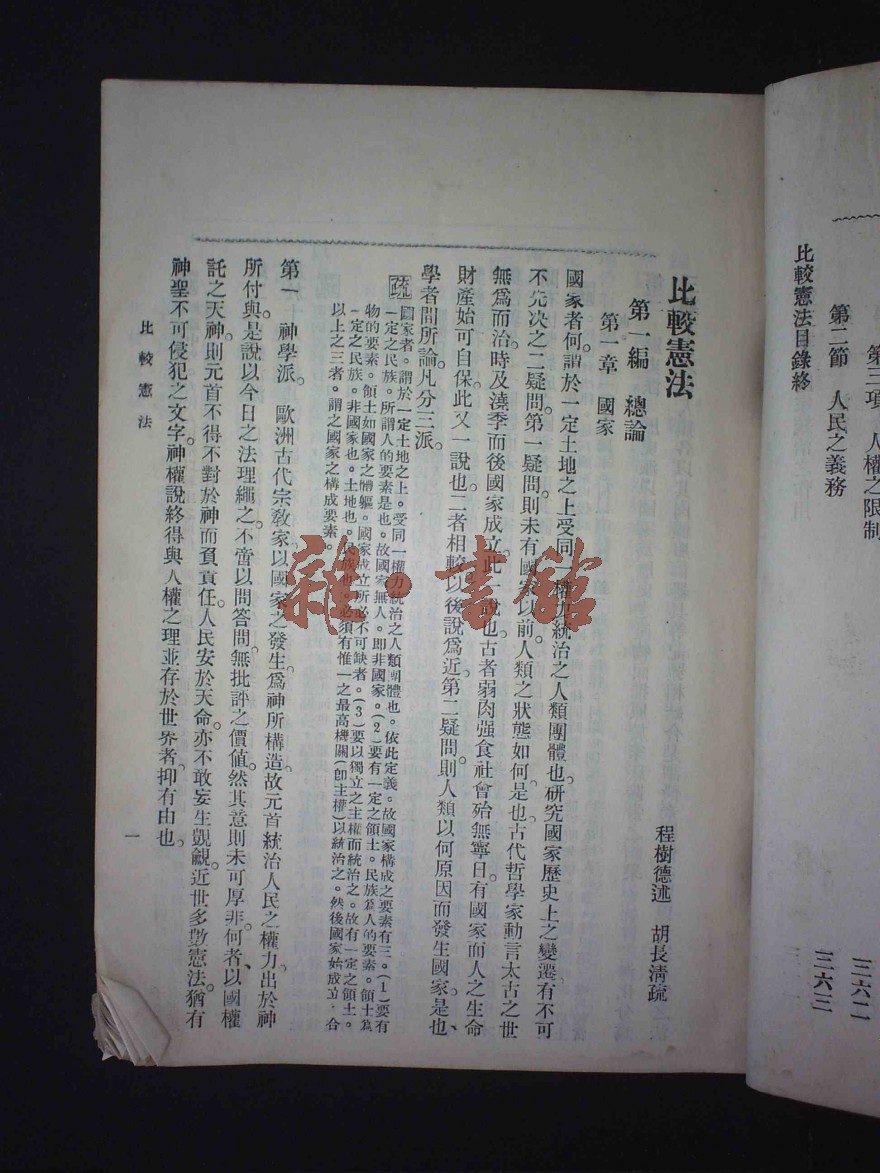 第三項　人權之限制　三六二
第二節　人民之義務　三六三
比較憲法目錄終
比較憲法
程樹德述　胡長淸疏
第一編　總論
第一章　國家
國家者何。謂於一定土地之上受同一權力統治之人類團體也。硏究國家歷史上之變遷有不可
不先決之二疑問。第一疑問則未有國家以前。人類之狀態如何是也。古代哲學家動言太古之世
無爲而治。時及澆季而後國家成立。此一說也。古者弱肉强食社會殆無寧日。有國家而人之生命
財產始可自保。此又一說也。二者相較。以後說爲近。第二疑問。則人類以何原因而發生國家是也、
學者間所論。凡分三派。
疏　國家者。謂於一定土地之上。受同一權力統治之人類團體也。依此定義。故國家構成之要素有三。(1)要有
一定之民族。所謂人的要素是也。故國家無人。卽非國家。(2)要有一定之領土。民族爲人的要素。領土爲
物的要素。領土如國家之體軀。國家成立所必不可缺者。(3)要以獨立之主權而統治之。故有一定之領土。
一定之民族。非國家也。土地也。民族也。必須有惟一之最高機關(卽主權)以統治之。然後國家始成立。合
以上之三者。謂之國家之構成要素。
第一　神學派。　歐洲古代宗敎家。以國家之發生爲神所構造。故元首統治人民之權力。出於神
所付與。是說以今日之法理繩之。不啻以問答問。無批評之價値。然其意則未可厚非。何者、以國權
託之天神。則元首不得不對於神而負責任。人民安於天命。亦不敢妄生覬覦。近世多數憲法。猶有
神聖不可侵犯之文字。神權說終得與人權之理並存於世界者。抑有由也。
比較憲法
一
雜·書館